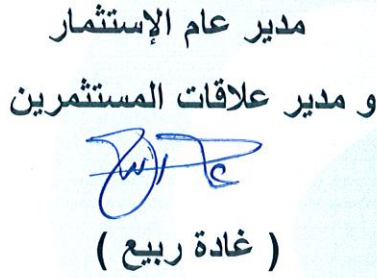 مدير عام الإستثمار
و مدير علاقات المستثمرين
( غادة ربيع )